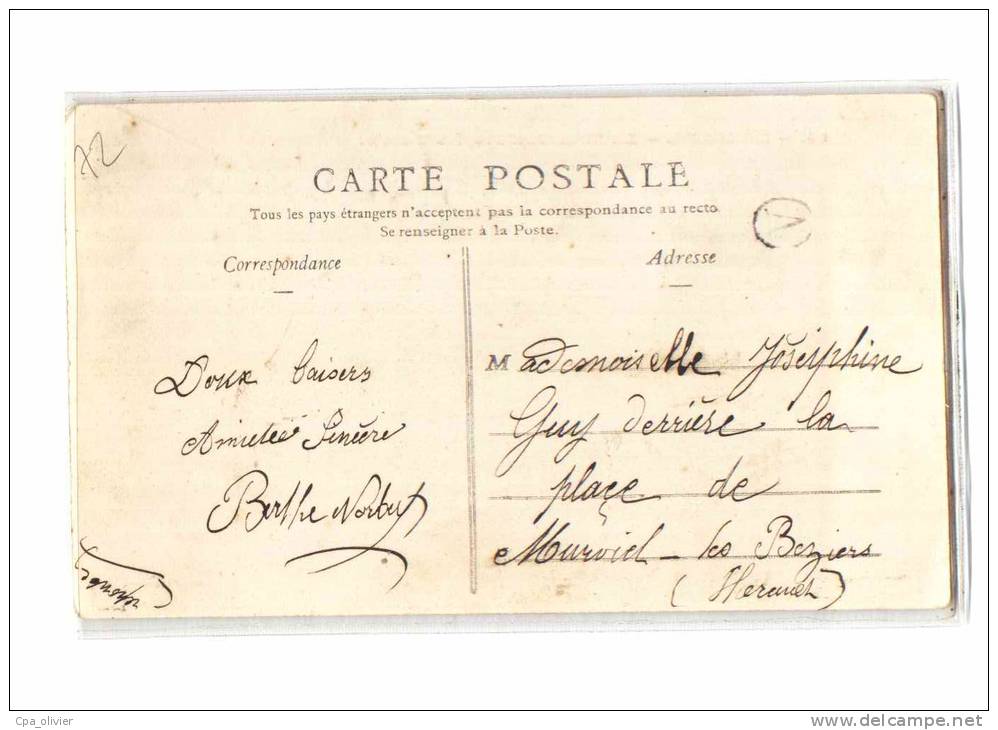 72
CARTE POSTALE
Tous les pays étrangers n'acceptent pas la correspondance au recto
Se renseigner à la Poste.
Correspondance
Doux baisers
Amitiée Sincère
Berthe Norbert
Adresse
Mademoiselle Joséiphine
Guy derrière la
plaçe de
Murviel-les Beziers
(Herault)
Cpa_olivier
www.delcampe.net